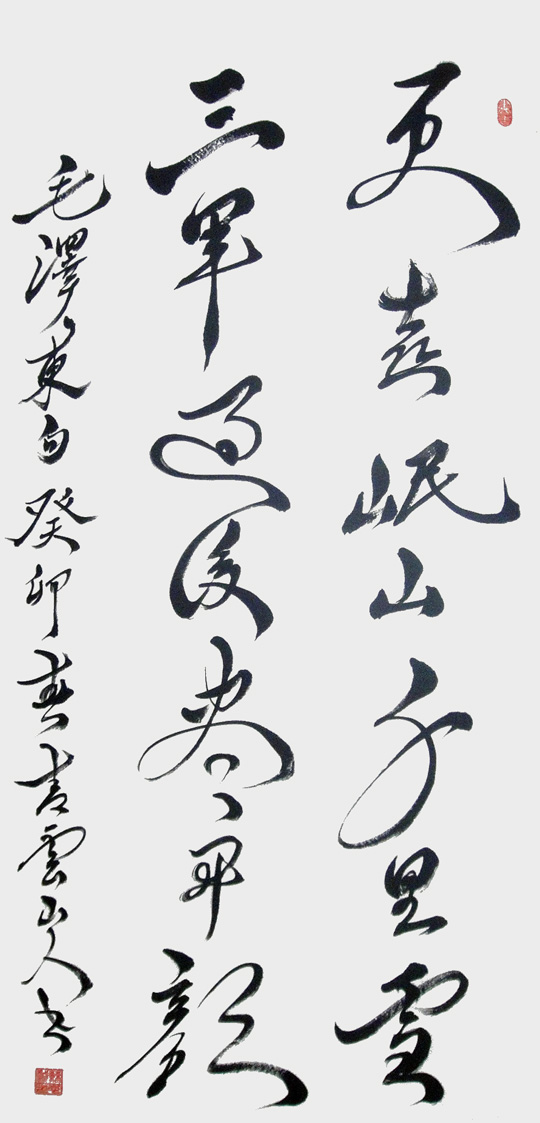 更喜岷山千里雪
三軍過後盡開顏
毛澤東句癸卯春青雲山人书